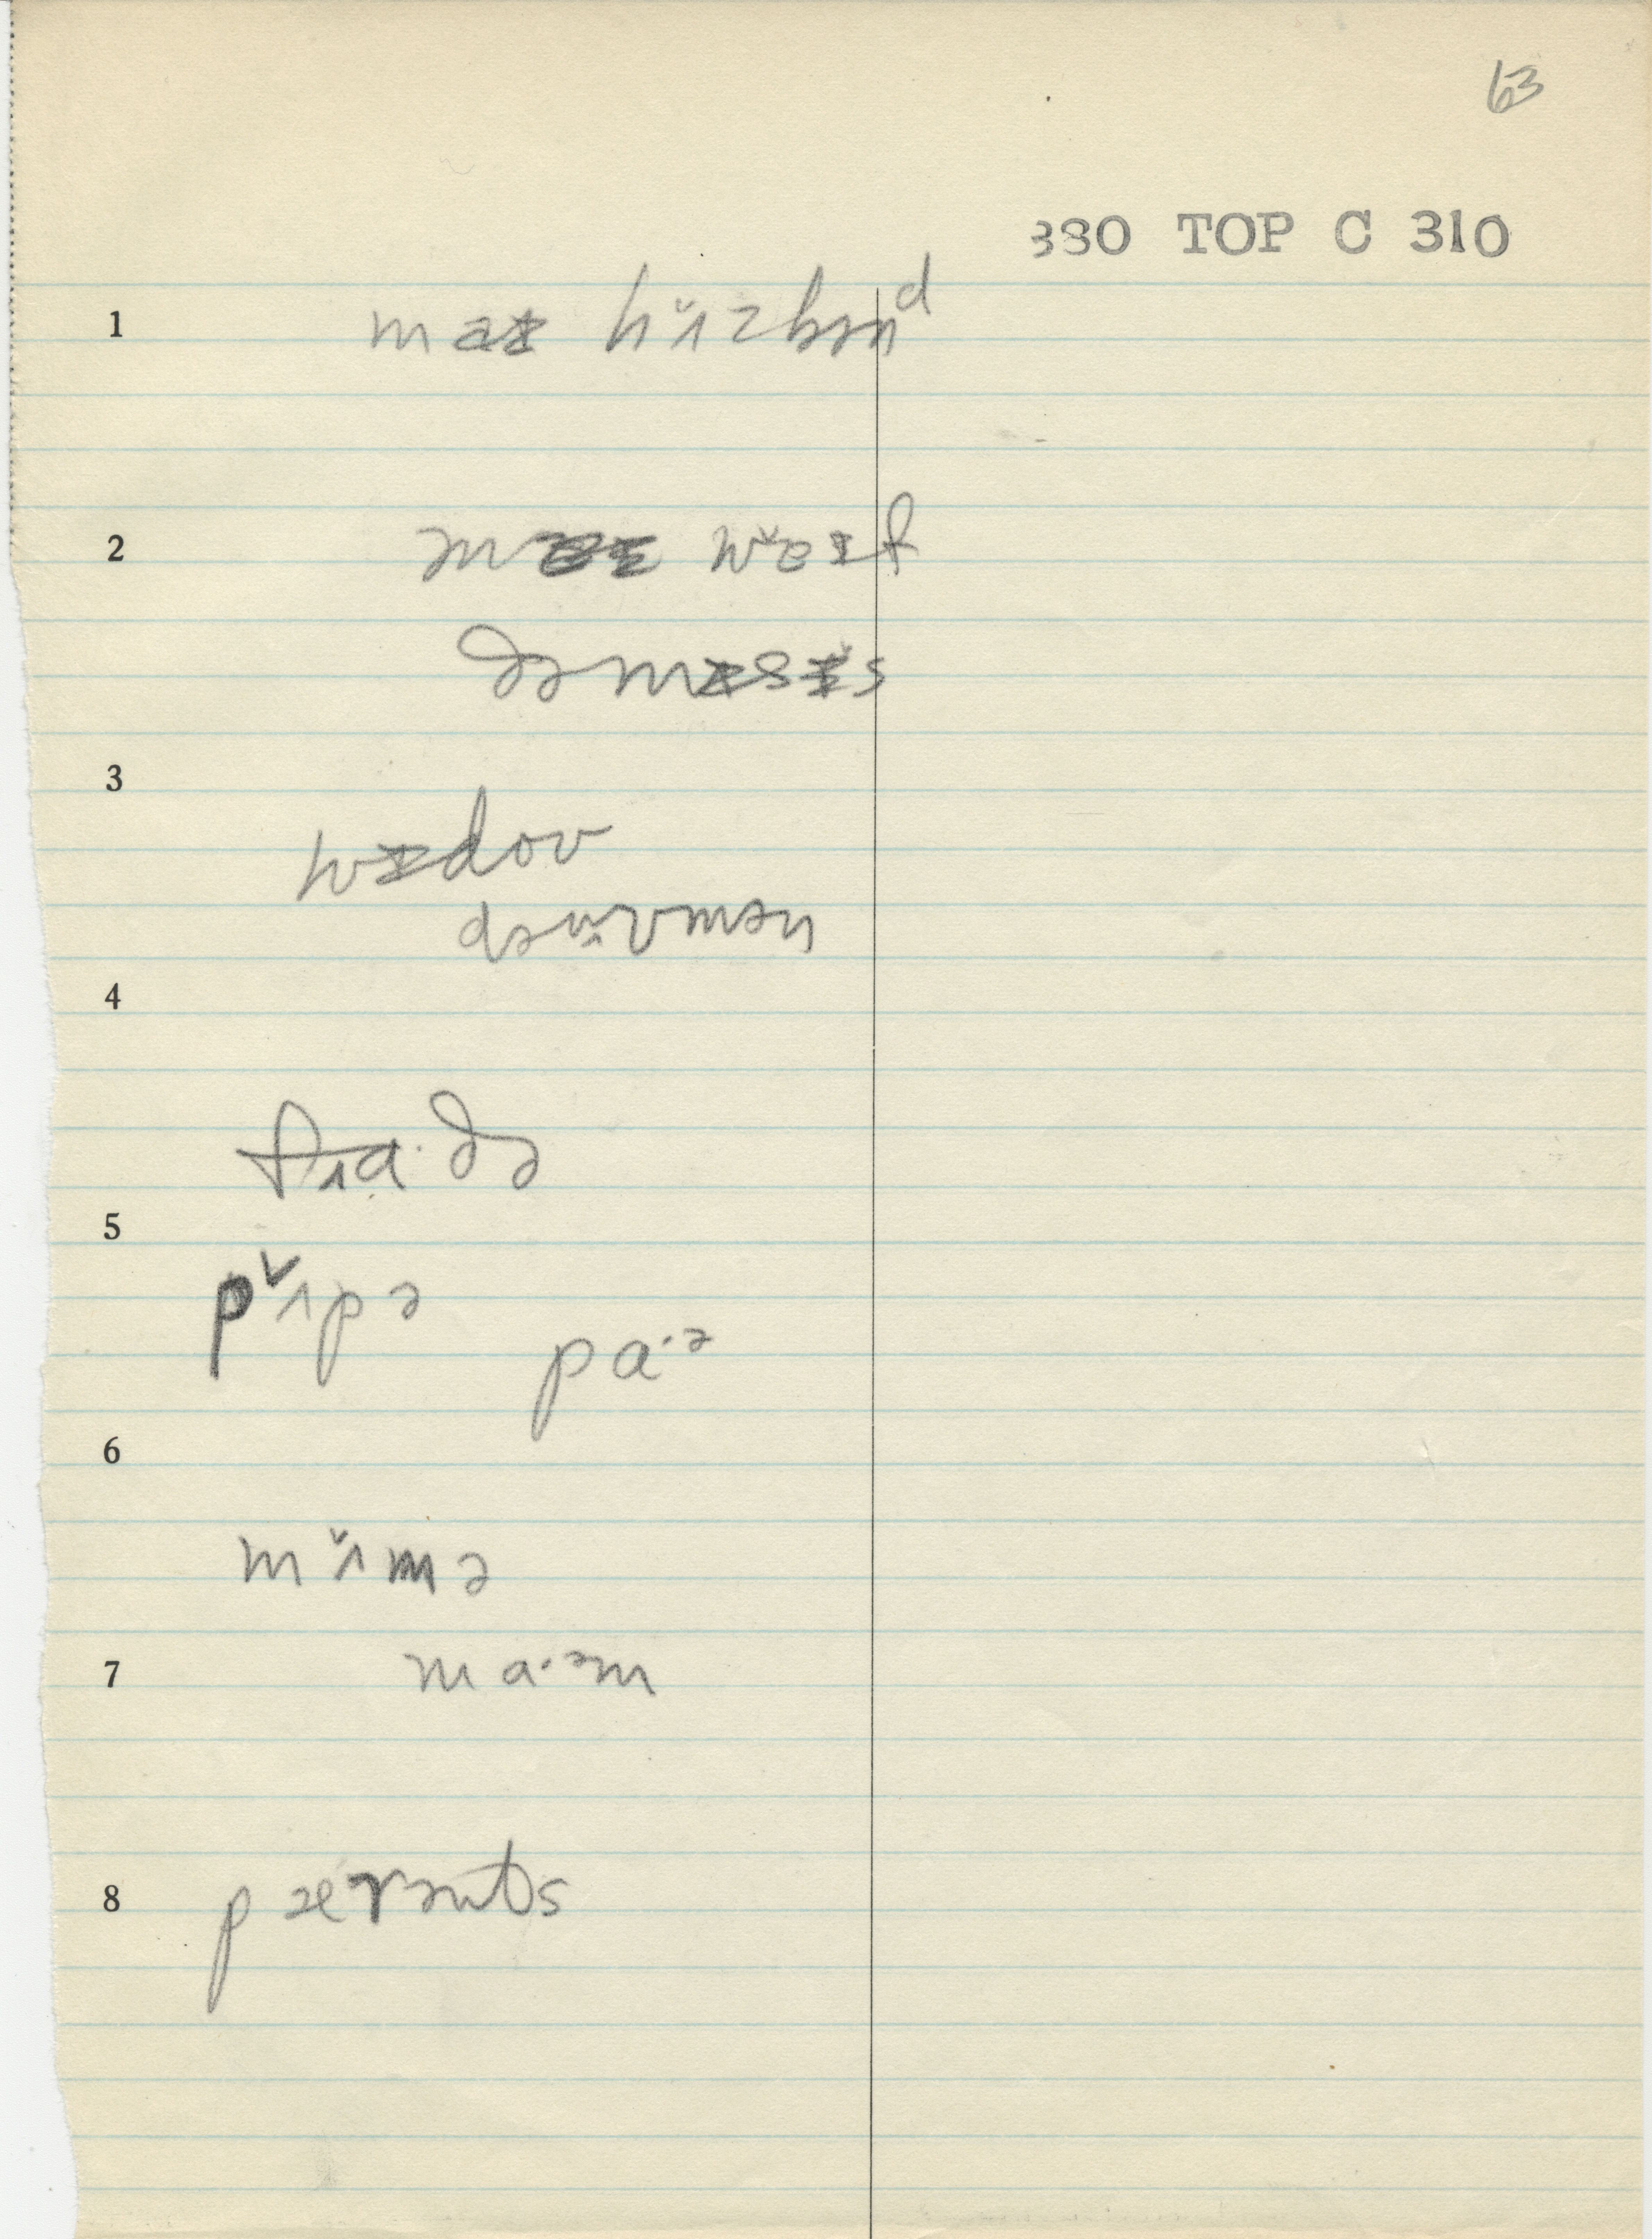 63
380 TOP C 310
1 maɪ hʌ̌zbənᵈ
2 maɪ wǎɪf
ðə mɪsɪ̌s
3
wɪdov
də wʌ̌vmən
4
fʌa·ðə
5
pʌ̌pə
pa·ə
6
mʌ̌mə
7 ma·əm
8 pærənts